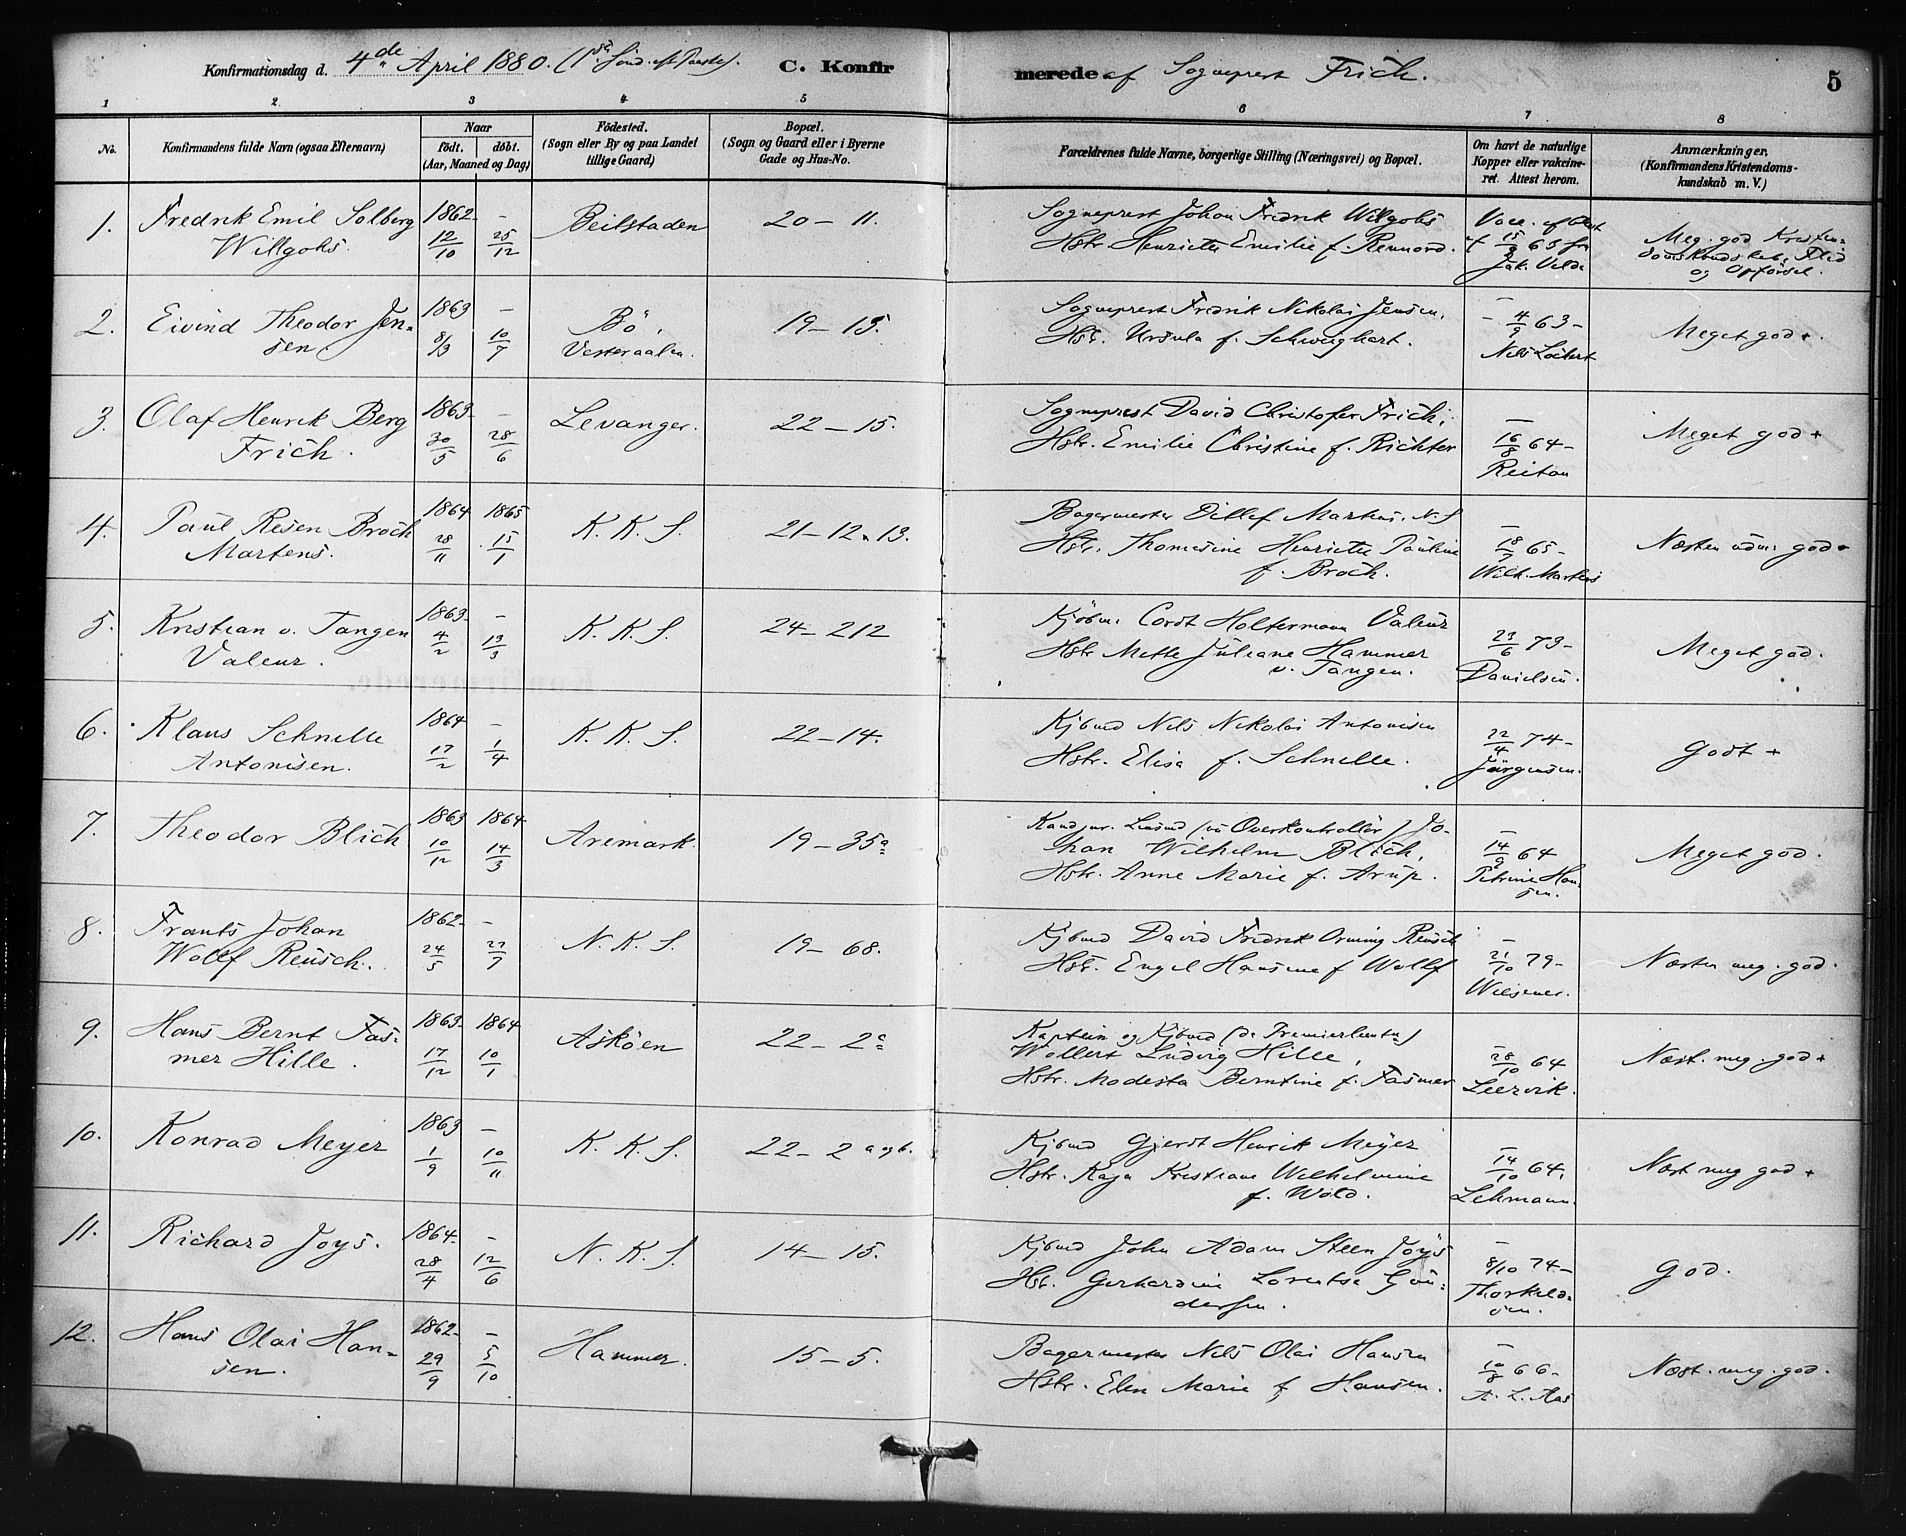 Konfirmationsdag d. 4de April 1880. (1ste Sönd. eft. Paaske). C. Konfirmerede af Sogneprest Frich. 5
1 2 3 4 5 6 7 8
No. Konfirmandens fulde Navn (ogsaa Efternavn) Naar födt. döbt. (Aar, Maaned og Dag) Födested. (Sogn eller By og paa Landet tillige Gaard) Bopæl. (Sogn og Gaard eller i Byerne Gade og Hus-No. Forældrenes fulde Navne, borgerlige Stilling (Næringsvei) og Bopæl. Om havt de naturlige Kopper eller vakcineret. Attest herom. Anmærkninger, (Konfirmandens Kristendomskundskab m. V.)
1. Fredrik Emil Solberg 1862 - Beilstaden 20 - 11. Sogneprest Johan Fredrik Willgohs Vacc.
Willgohs. 12/10 25/12 Hstr. Henriette Emilie f. Rennord. 15/9 65 Meg. god Kristendomskundskab, Flid
Jak. Velde og Opförsel.
2. Eivind Theodor Jen- 1863 - Bö, 19 - 15. Sogneprest Fredrik Nikolai Jensen, -
sen. 8/3 10/7 Vesteraalen. Hstr. Ursula f. Schweighart. - 4/9 63 - Meget god +
Nils Lockert
3. Olaf Henrik Berg 1863 - Levanger. 22 - 15. Sogneprest David Christofer Frich, -
Frich. 30/5 28/6 Hstr. Emilie Christine f. Richter 16/8 64 - Meget god +
Reitan
4. Paul Resen Broch 1864 1865 K. K. S. 21 - 12 & 13. Bagermester Ditlef Martens. N. S -
Martens. 28/11 15/1 Hstr. Thomasine Henriette Pauline 18/7 65 - Næsten udm. god +
f. Broch. Wilh. Martens
5. Kristian v. Tangen 1863 - K. K. S. 24 - 212 Kjöbm. Cordt Holtermann Valeur
Valeur. 4/2 13/3 Hstr Mette Juliane Hammer 23/6 73 - Meget god.
v. Tangen. Danielsen.
6. Klaus Schnelle 1864 - K. K. S. 22 - 14. Kjbmd Nils Nikolai Antonisen
Antonisen. 17/2 1/4 Hstr. Elisa f. Schnelle. 22/4 74 - Godt +
Jörgensen.
7. Theodor Blich 1863 1864 Aremark 19 - 35a Kand jur. (nu Overkontrollör) Jo- -
10/12 14/3 han Wilhelm Blich, 14/9 64 Meget god.
Hstr. Anne Marie f. Arup. Petrine Hansen.
8. Frants Johan 1862 - N. K. S. 19 - 68. Kjbmd David Fredrik Orning Reusch -
Wolff Reusch. 24/5 27/7 Hstr. Engel Hansine f Wolff 21/10 79 - Næsten meg. god.
Wiesener.
9. Hans Bernt Fas- 1863 1864 Asköen 22 - 2c Kaptein og Kjbmd (da Premierlieutn)
mer Hille. 17/12 10/1 Wollert Ludvig Hille, 28/10 64 Næst. meg. god +
Hstr. Modesta Berntine f. Fasmer Leervik.
10. Konrad Meyer 1863 - K. K. S. 22 - 2 a og b. Kjbmd Gjerdt Henrik Meyer -
1/9 10/11 Hstr. Kaja Kristiane Wilhelmine 14/10 64. Næst meg god +
f. Wold. Lehmann.
11. Richard Joys. 1864 - N. K. S. 14 - 15. Kjbmd John Adam Steen Joys -
28/4 12/6 Hstr. Gerhardine Lorentse Gun- 8/10 74 - God.
dersen. Thorkildsen.
12. Hans Olai Han- 1862 - Hammer. 15 - 5. Bagermester Nils Olai Hansen -
sen. 29/9 5/10 Hstr. Elen Marie f Hansen. 10/8 66 - Næst. meg. god.
A. L. Aas